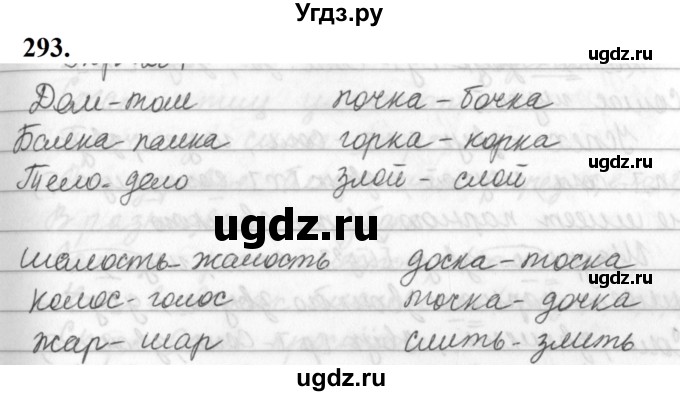 Угдз.ру
293.
Дом-том почка-бочка
Балка-палка горка-корка
Тело-дело злой-слой
шалость-жалость доска-тоска
колос-голос точка-дочка
жар-шар слить-злить
ugdz.ru
ugdz.ru
ugdz.ru
ugdz.ru
ugdz.ru
ugdz.ru